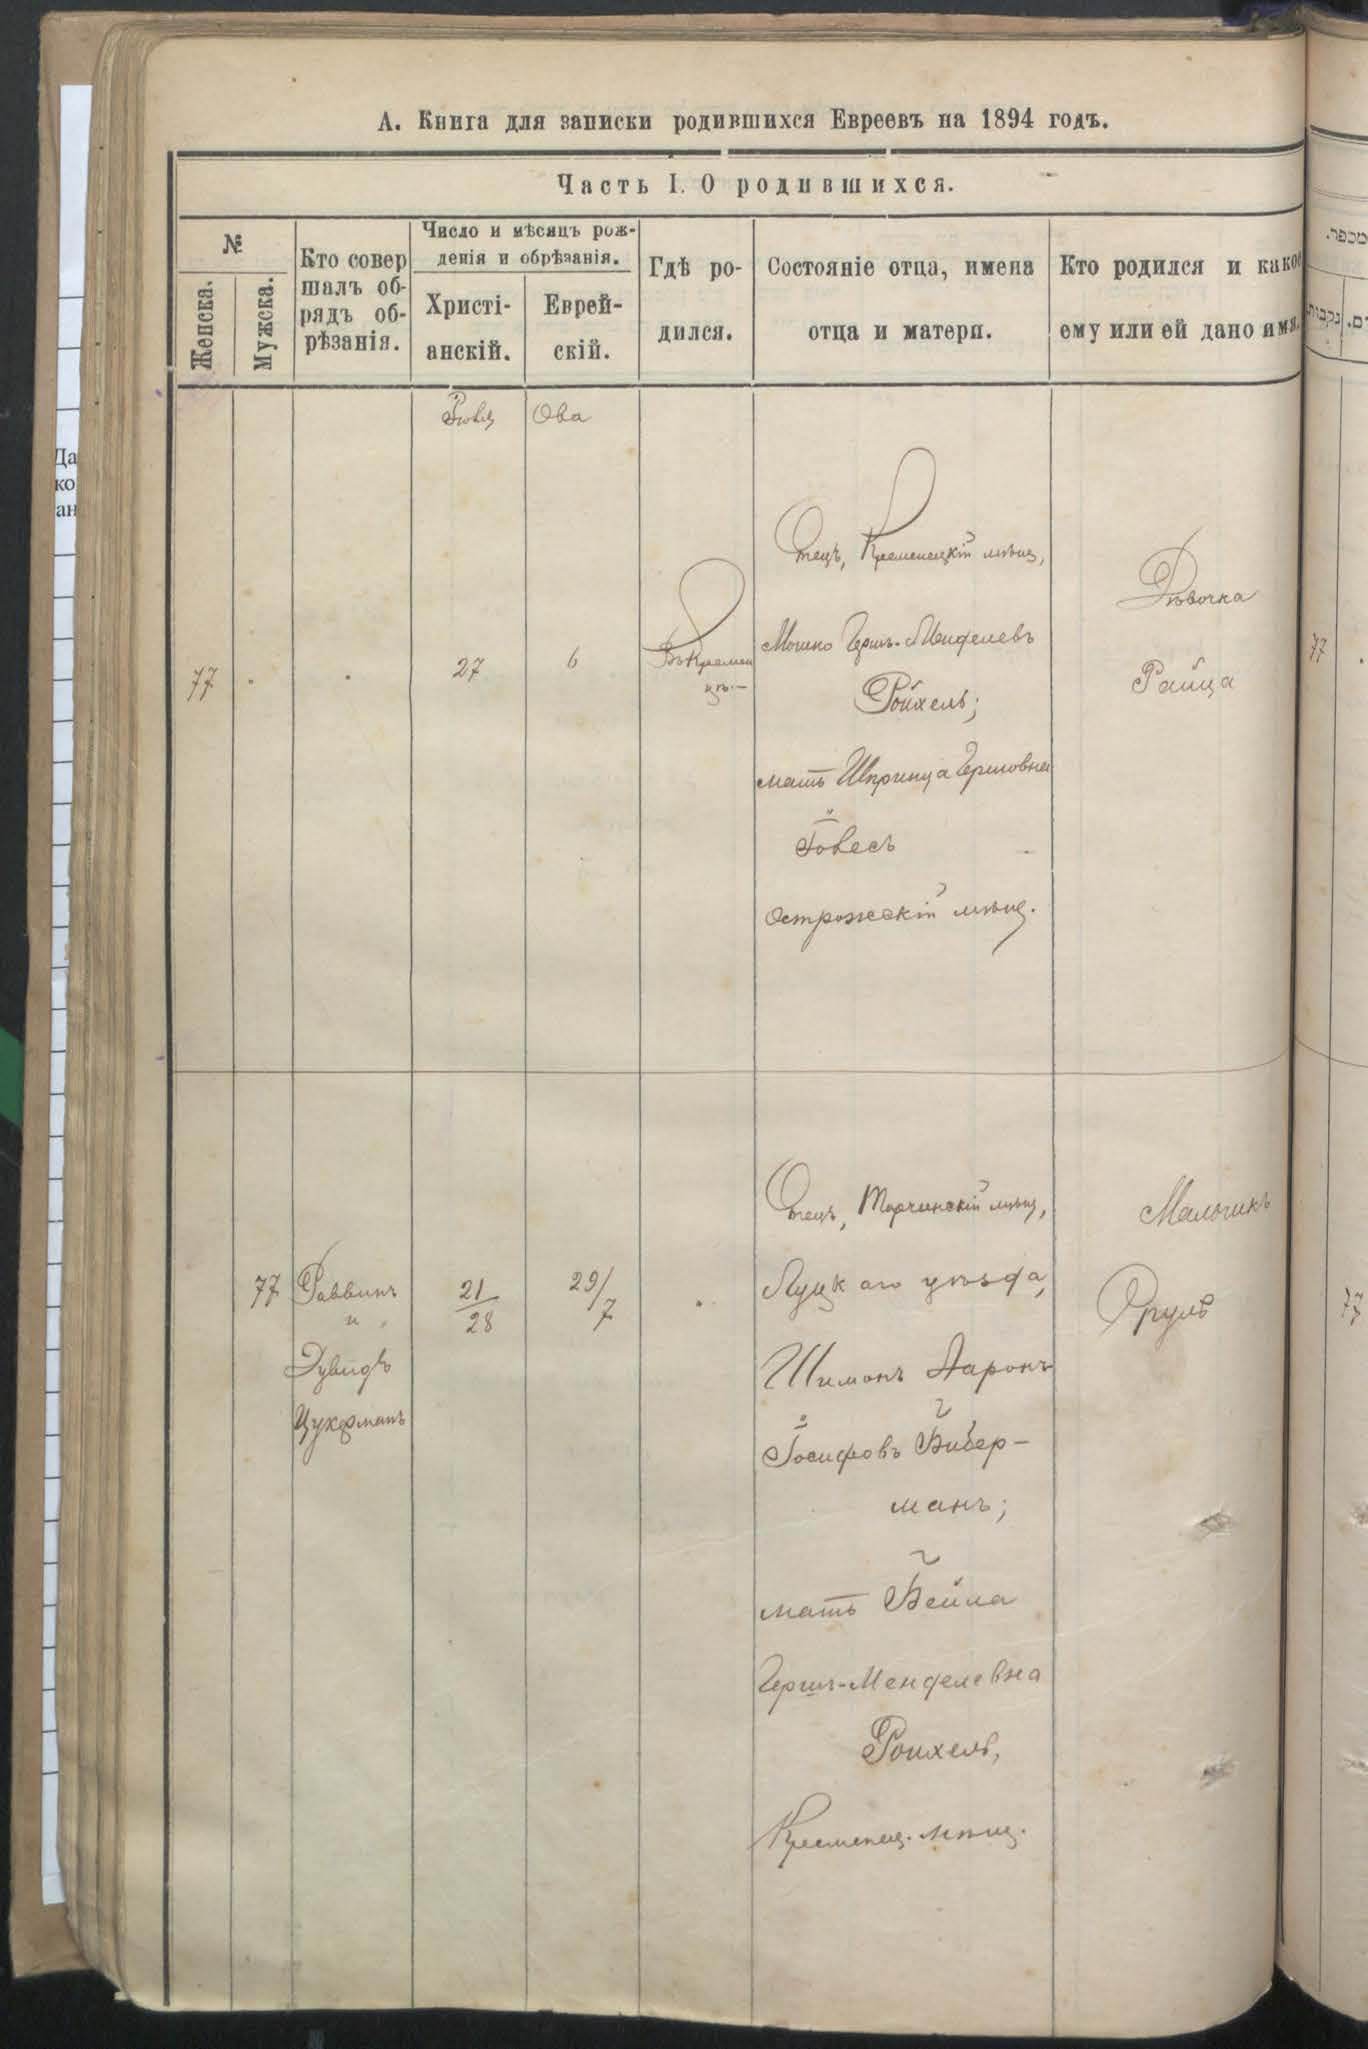 А. Книга для записки родившихся Евреевъ на 1894 годъ.
Часть I. О родившихся.
№
Женска.
Мужска.
Кто совер
шалъ об-
рядъ об-
рѣзанія.
Число и мѣсяцъ рож-
денія и обрѣзанія.
Христі-
анскій.
Еврей-
скій.
Гдѣ ро-
дился.
Состояніе отца, имена
отца и матери.
Кто родился и какое
ему или ей дано имя.
Ова
77
27
6
Въ Кремен
цѣ.-
Отецъ, Кременецкій мѣщ,
Мошко Герш-Менделевъ
Ройхель;
мать Шпринца Гершовна
Іовесъ
Острожскій мѣщ.
Дѣвочка
Райца
77
77
Раввинъ
и
Дувидъ
Цукерманъ
21
28
29/
7
Отецъ, Торчинскій мѣщ,
Луцкаго уѣзда,
Шимонъ Ааронъ
Іосифовъ Бибер-
манъ;
мать Бейла
Герш-Менделевна
Роихель,
Кременец. мѣщ.
Мальчикъ
Сруль
77
מספר.
נקבות.